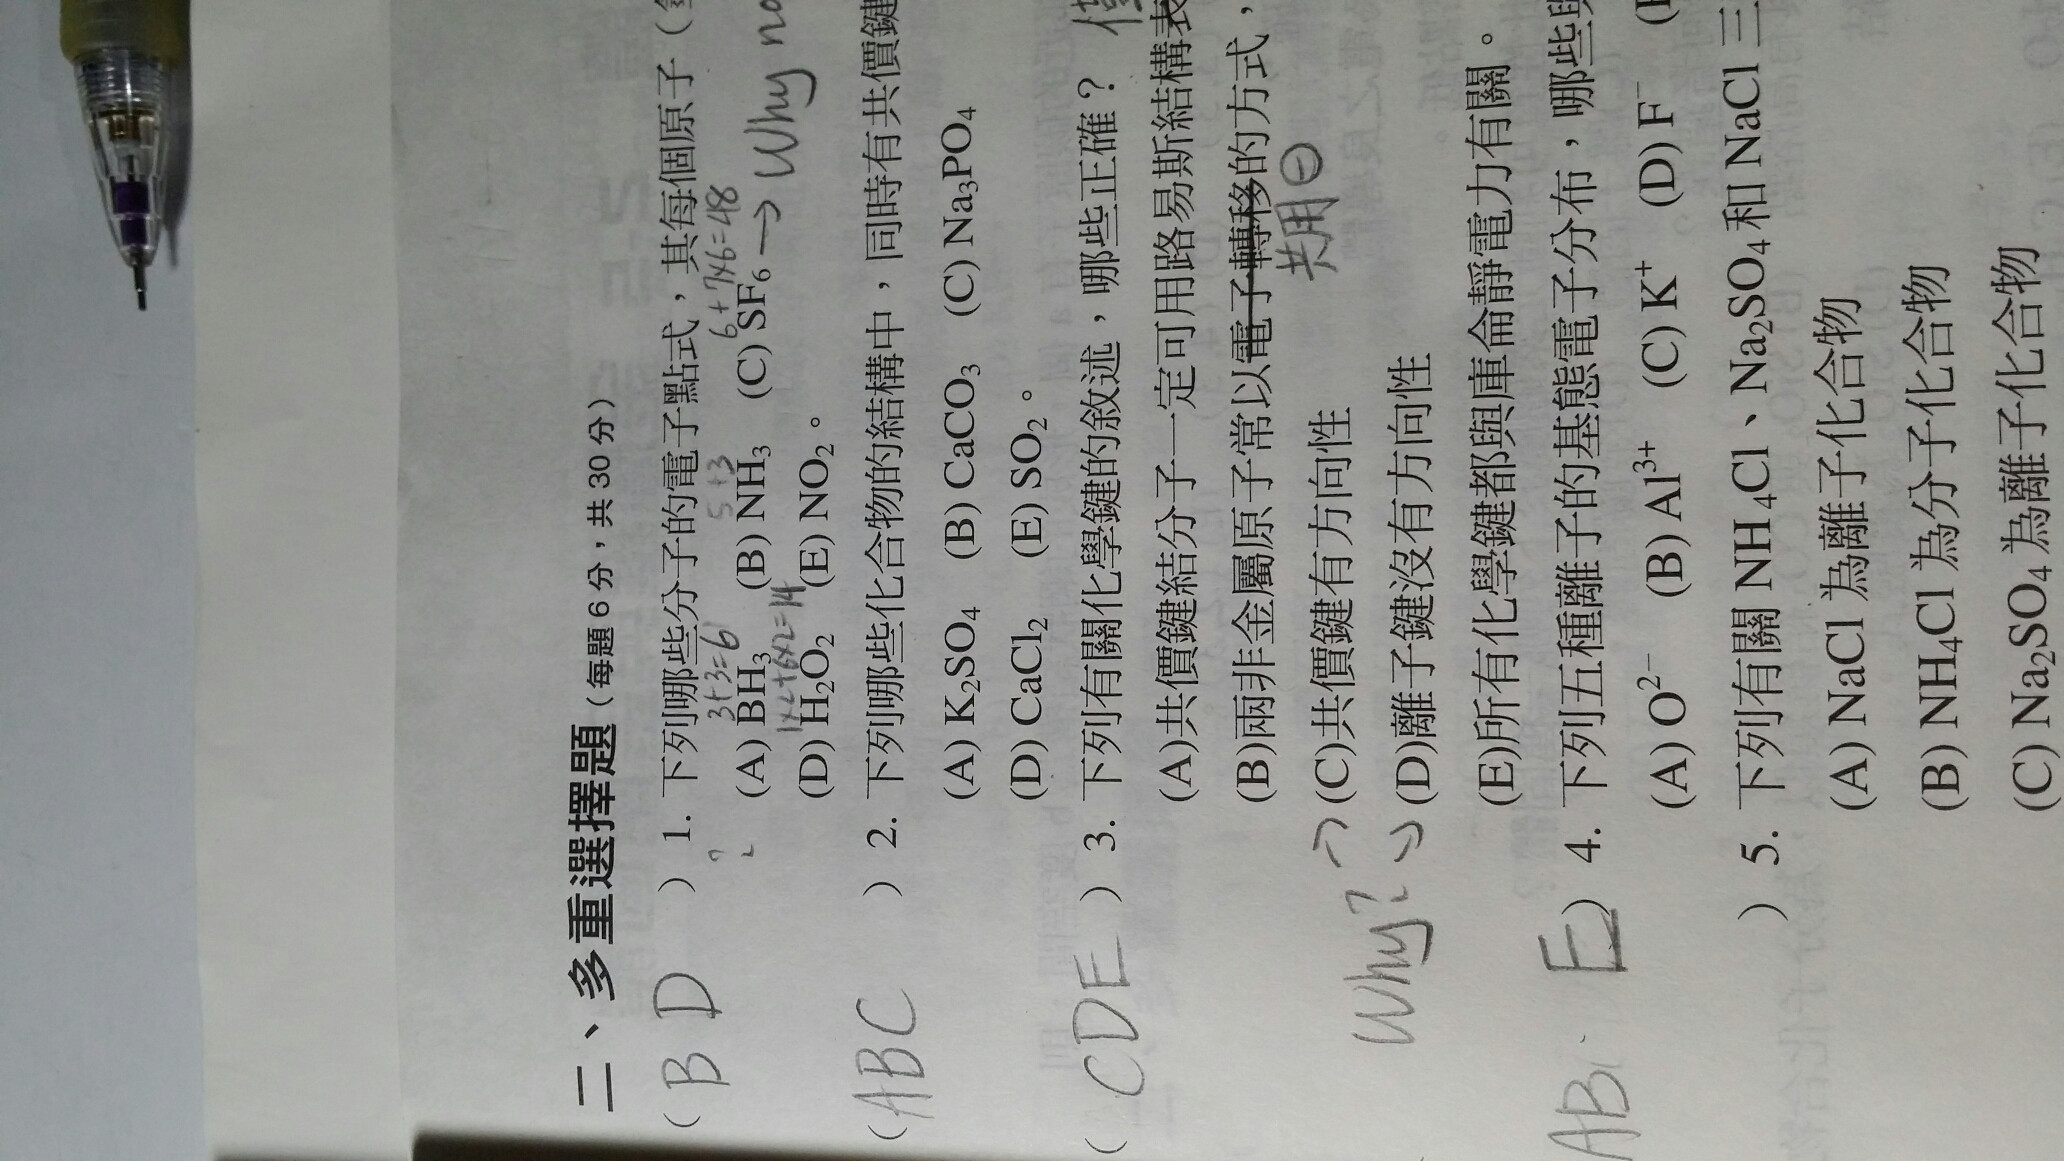 二、多重選擇題（每題 6 分，共 30 分）
( B D ) 1. 下列哪些分子的電子點式，其每個原子（
3+3=6 5+3 6+7×6=48
(A) BH₃ (B) NH₃ (C) SF₆ → Why no
1×2+6×2=14
(D) H₂O₂ (E) NO₂。
( ABC ) 2. 下列哪些化合物的結構中，同時有共價鍵
(A) K₂SO₄ (B) CaCO₃ (C) Na₃PO₄
(D) CaCl₂ (E) SO₂。
( CDE ) 3. 下列有關化學鍵的敘述，哪些正確？
(A)共價鍵結分子一定可用路易斯結構表
(B)兩非金屬原子常以電子轉移的方式，
共用⊖
(C)共價鍵有方向性
Why?
(D)離子鍵沒有方向性
(E)所有化學鍵都與庫侖靜電力有關。
AB E ) 4. 下列五種離子的基態電子分布，哪些與
(A) O²⁻ (B) Al³⁺ (C) K⁺ (D) F⁻
) 5. 下列有關 NH₄Cl、Na₂SO₄ 和 NaCl 三
(A) NaCl 為離子化合物
(B) NH₄Cl 為分子化合物
(C) Na₂SO₄ 為離子化合物